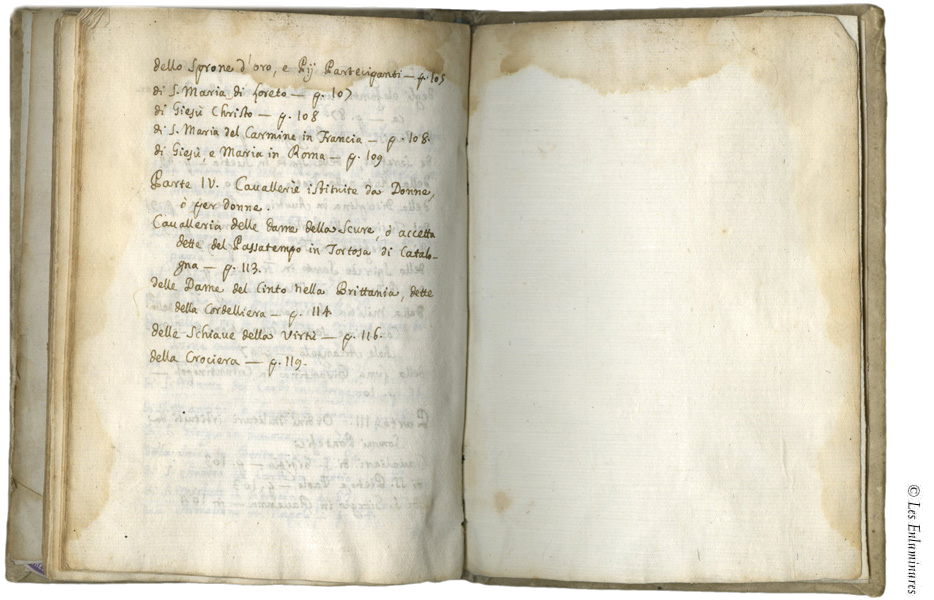 dello Sprone d'oro, e Pij Participanti — p. 105
di S. Maria di Loreto — p. 107
di Giesù Christo — p. 108
di S. Maria del Carmine in Francia — p. 108.
di Giesù, e Maria in Roma — p. 109
Parte IV. Cavallerie istituite da Donne,
ò per donne.
Cavalleria delle dame della Scure, ò accetta
dette del Passatempo in Tortosa di Catalo-
gna — p. 113.
delle Dame del Cinto nella Brittania, dette
della Cordelliera — p. 114
delle Schiave della Virtù — p. 116.
della Crociera — p. 119.
© Les Enluminures